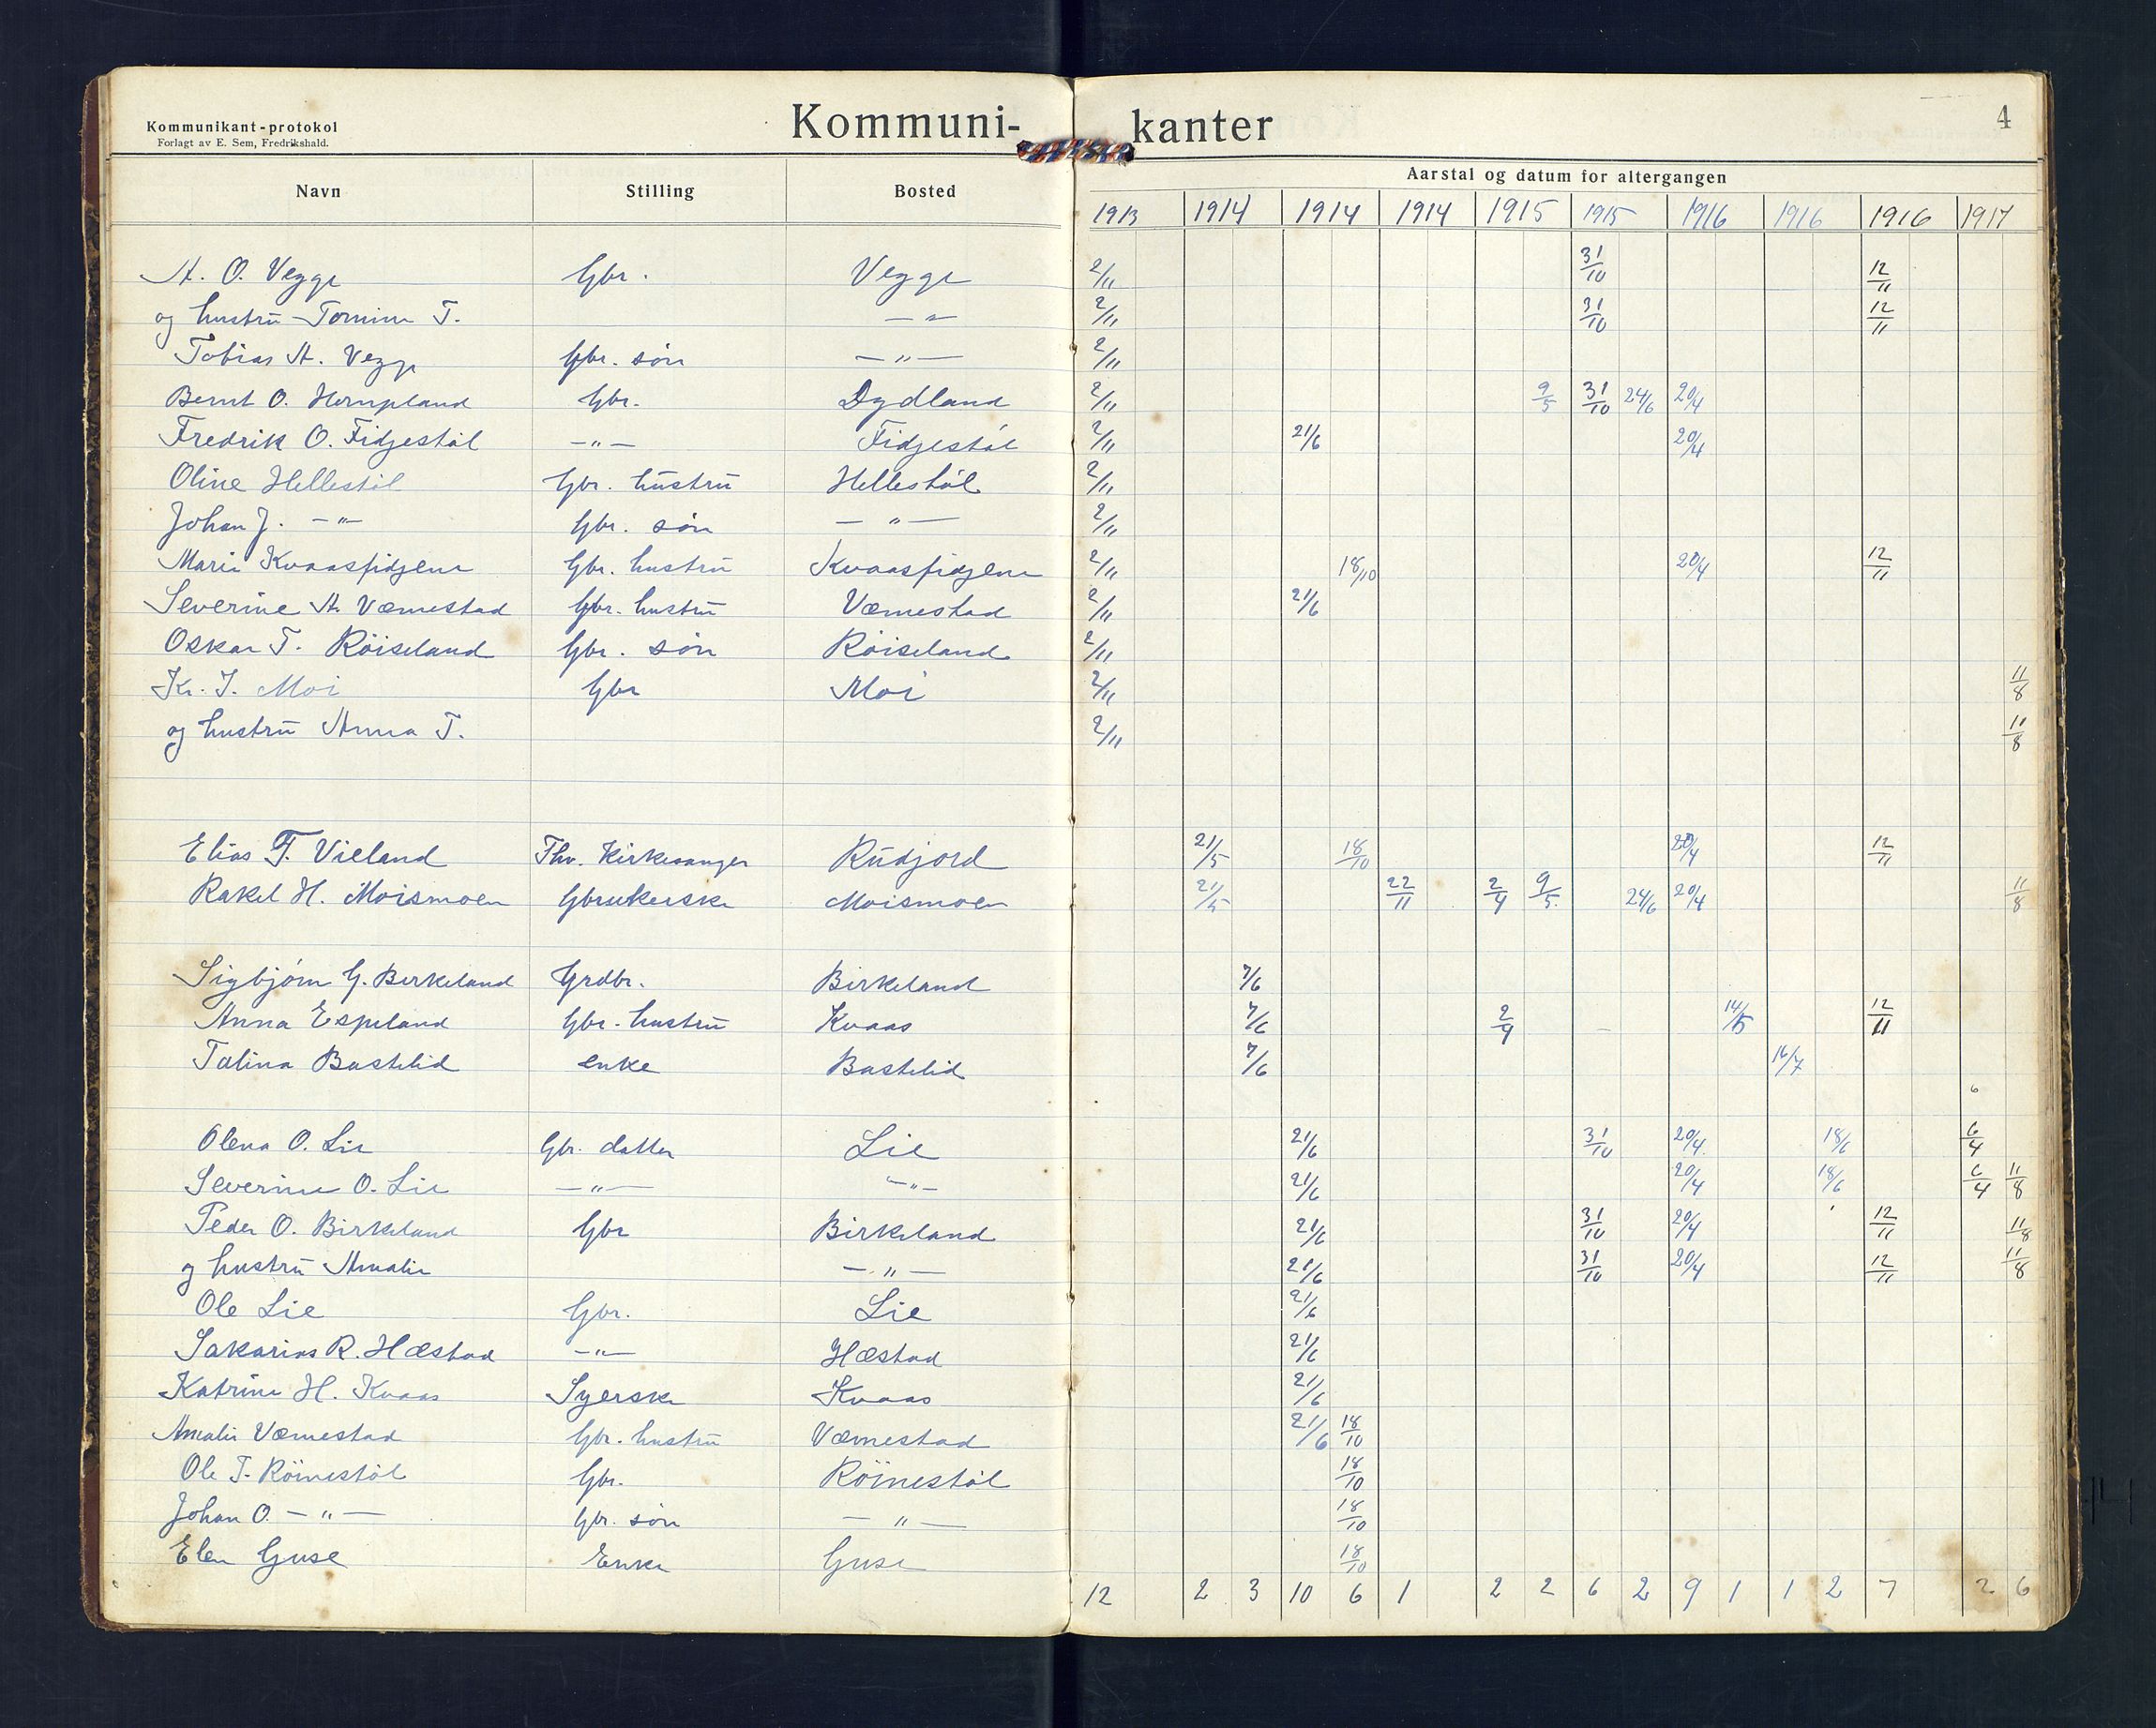 Kommunikant-protokol
Forlagt av E. Sem, Fredrikshald.
Kommuni-kanter
4
Navn Stilling Bosted Aarstal og datum for altergangen
1913 1914 1914 1914 1915 1915 1916 1916 1916 1917
A. O. Vegge Gbr. Vegge 2/11 31/10 12/11
og hustru Tomine T. —"— 2/11 31/10 12/11
Tobias A. Vegge Gbr. søn —"— 2/11
Bernt O. Hompland Gbr. Dydland 2/11 9/5 31/10 24/6 20/4
Fredrik O. Fidjestöl —"— Fidjestöl 2/11 21/6 20/4
Oline Hellestöl Gbr. hustru Hellestöl 2/11
Johan J. —"— Gbr. søn —"— 2/11
Marie Kvaasfidjene Gbr. hustru Kvaasfidjene 2/11 18/10 20/4 12/11
Severine A. Væmestad Gbr. hustru Væmestad 2/11 21/6
Oskar T. Röiseland Gbr. søn Röiseland 2/11
Kr. I. Moi Gbr Moi 2/11 11/8
og hustru Anna T. 2/11 11/8
Elias F. Vieland Fhv. Kirkesanger Rudjord 21/5 18/10 20/4 12/11
Rakel H. Moismoen Gbrukerske Moismoen 21/5 22/11 2/4 9/5 24/6 20/4 11/8
Sigbjörn G. Birkeland Grdbr. Birkeland 7/6
Anna Espeland Gbr. hustru Kvaas 7/6 2/4 14/5 12/11
Talina Bastelid enke Bastelid 7/6 16/7
6
Olena O. Lie Gbr. datter Lie 21/6 31/10 20/4 18/6 6/4
Severine O. Lie —"— —"— 21/6 20/4 18/6 6/4 11/8
Peder O. Birkeland Gbr Birkeland 21/6 31/10 20/4 12/11 11/8
og hustru Amalie —"— 21/6 31/10 20/4 12/11 11/8
Ole Lie Gbr. Lie 21/6
Sakarias R. Hæstad —"— Hæstad 21/6
Katrine H. Kvaas Syerske Kvaas 21/6
Amalie Væmestad Gbr. hustru Væmestad 21/6 18/10
Ole T. Röinestöl Gbr. Röinestöl 18/10
Johan O. —"— Gbr. søn —"— 18/10
Elen Guse Enke Guse 18/10
12 2 3 10 6 1 2 2 6 2 9 1 1 2 7 2 6